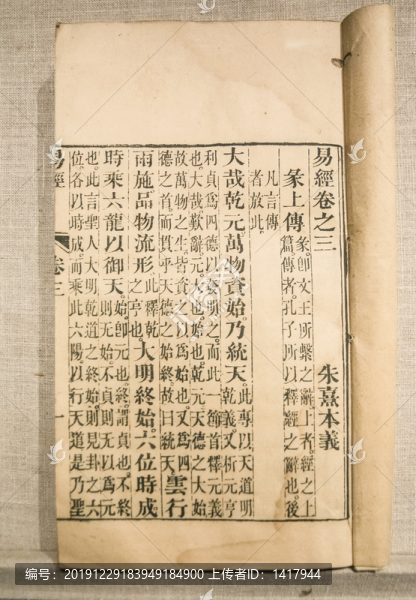 易經卷之三
朱熹本義
彖上傳
彖即文王所繫之辭。上者。經之上
篇。傳者。孔子所以釋經之辭也。後
凡言傳
者放此。
大哉乾元萬物資始乃統天
此專以天道明
乾義又析元亨
利貞為四德以發明之而此一節首釋元義
也大哉歎辭元大也始也乾元天德之大始
故萬物之生皆資之以為始也又為四
德之首而貫乎天德之始終故曰統天
雲行
雨施品物流形
此釋乾
之亨也
大明終始六位時成
時乘六龍以御天
始即元也終謂貞也不終
則無始不貞則無以為元
也此言聖人大明乾道之終始則見卦之六
位各以時成而乘此六陽以行天道是乃聖
易經
卷三
一
编号：20191229183949184900 上传者ID：1417944